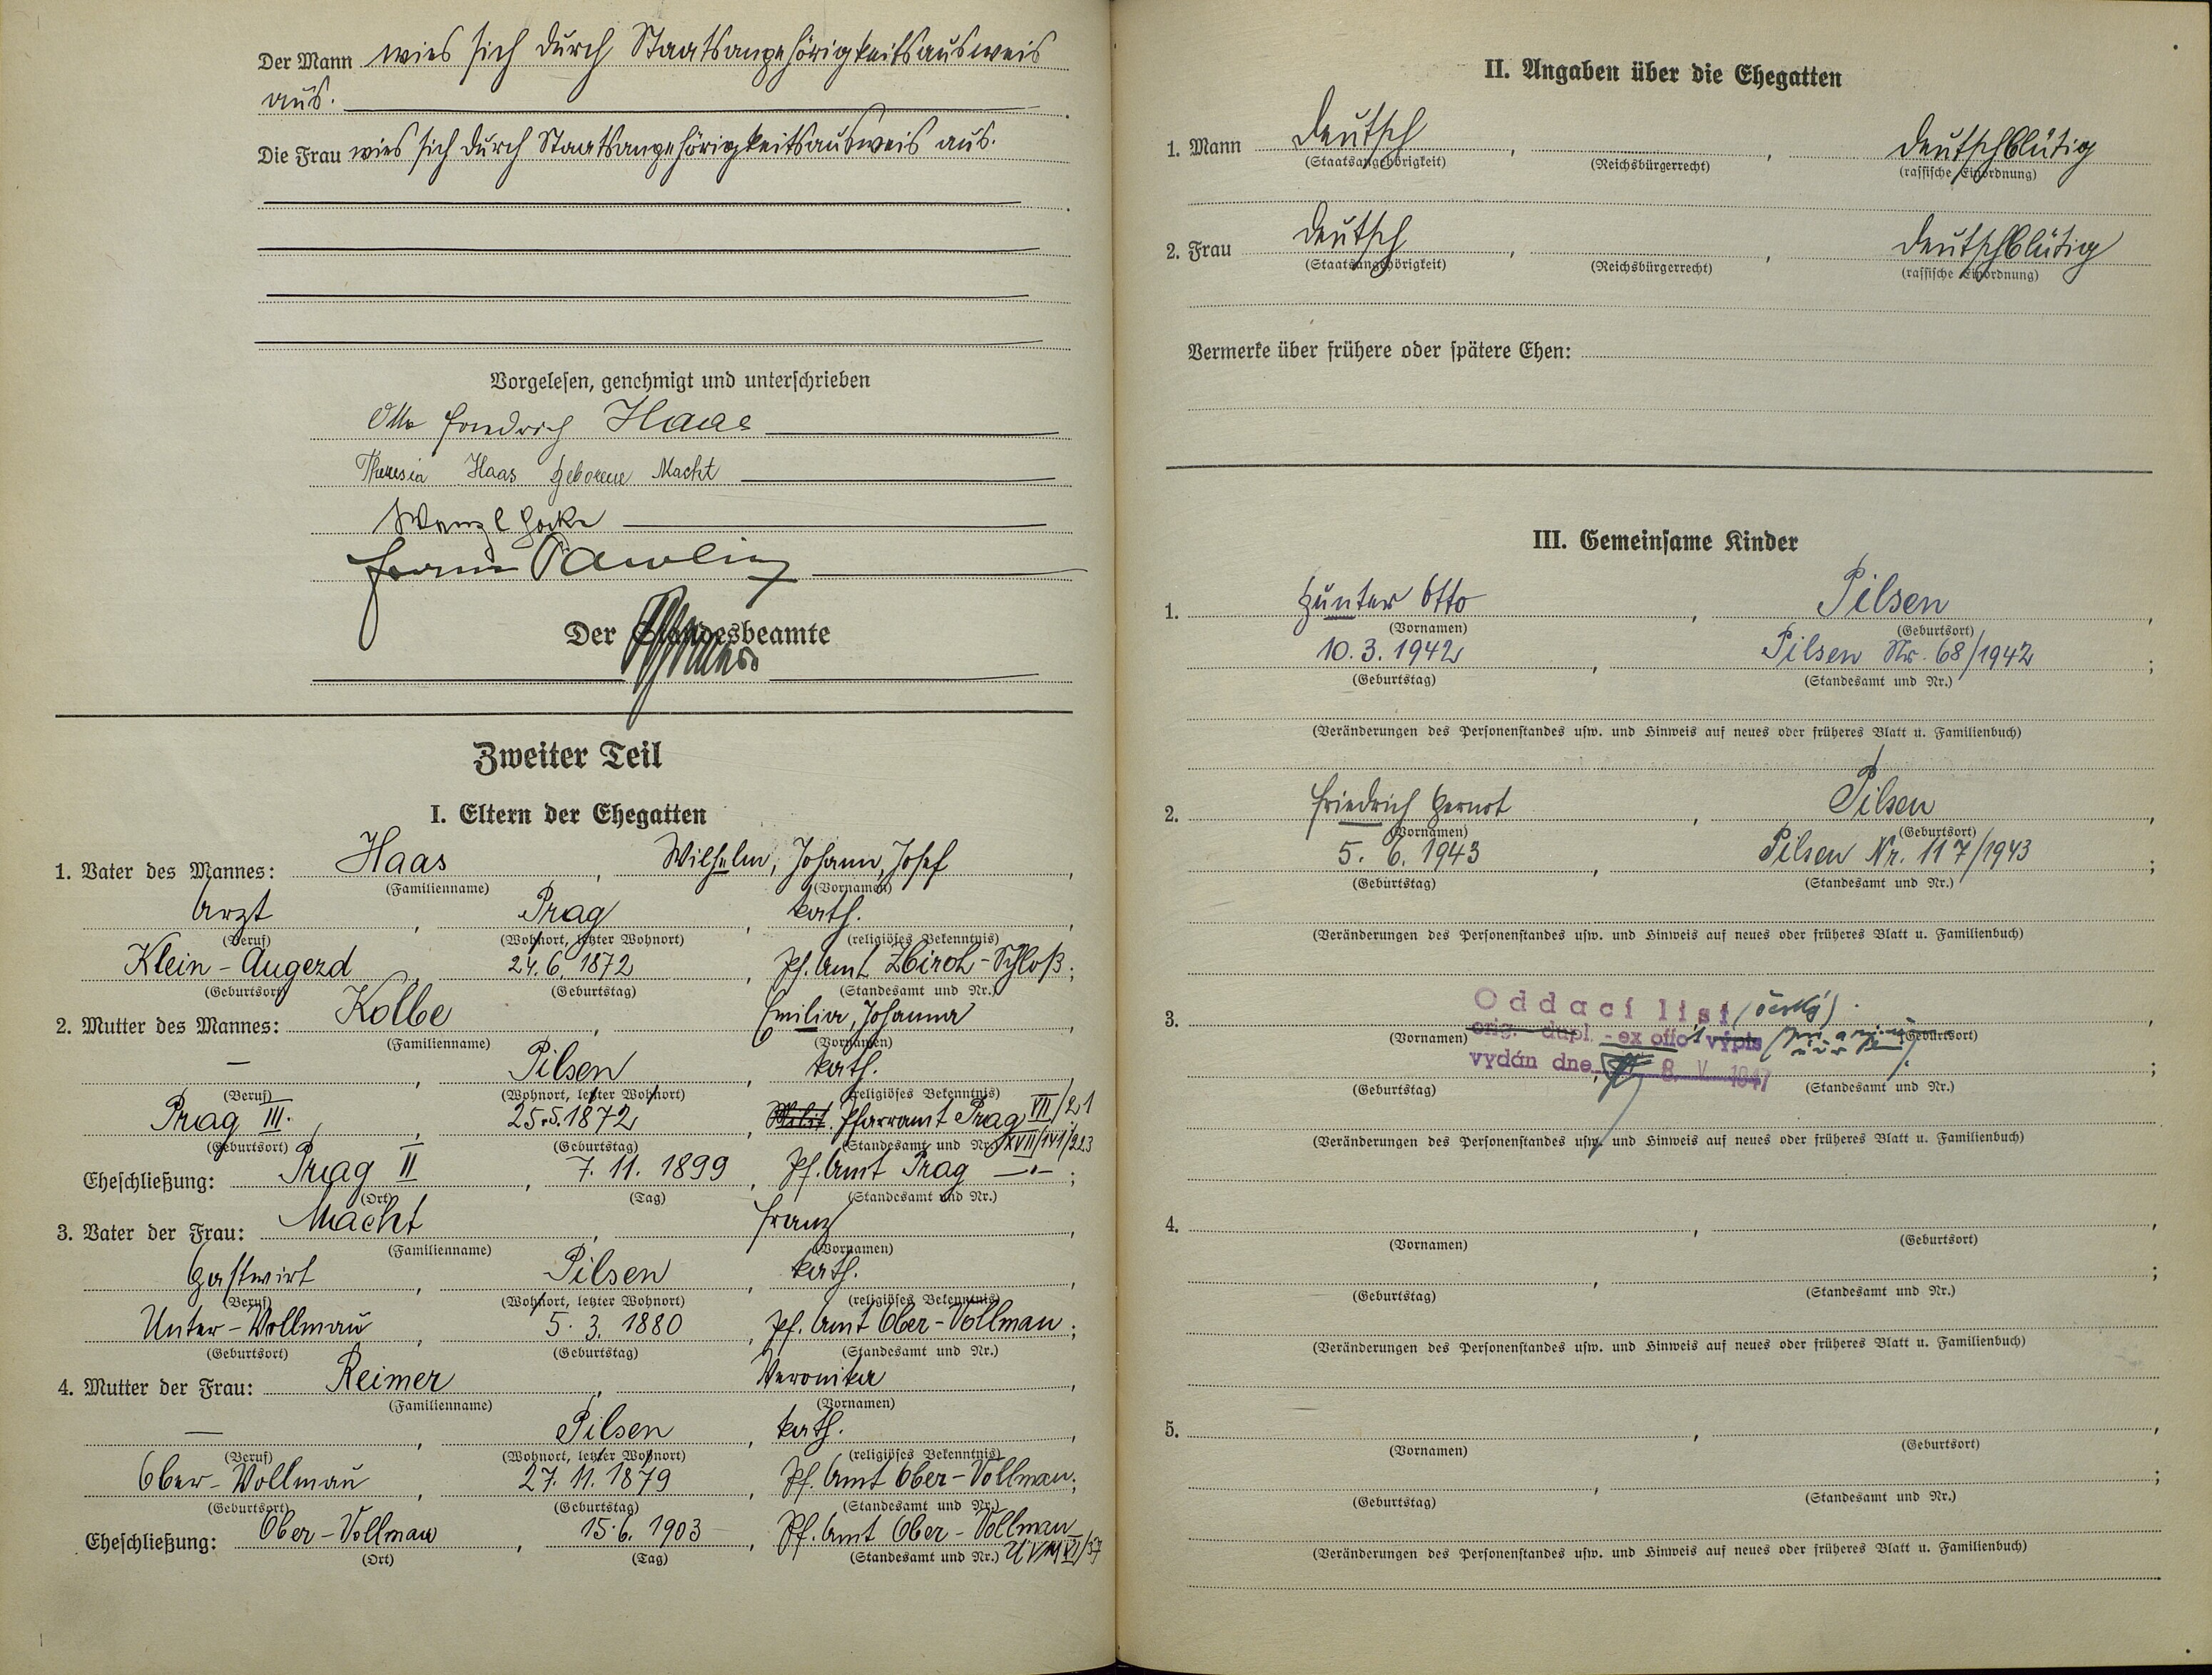 Der Mann wies sich durch Staatsangehörigkeitsausweis
aus.
Die Frau wies sich durch Staatsangehörigkeitsausweis aus.
Vorgelesen, genehmigt und unterschrieben
Otto Friedrich Haas
Theresia Haas geborene Macht
Wenzl
Franz Pawling
Der Standesbeamte
Zweiter Teil
I. Eltern der Ehegatten
1. Vater des Mannes: Haas, Wilhelm, Johann, Josef,
(Familienname) (Vornamen)
Arzt, Prag, kath.,
(Beruf) (Wohnort, letzter Wohnort) (religiöses Bekenntnis)
Klein-Augezd, 24.6.1872, Pf. Amt Zbiroh-Schloß;
(Geburtsort) (Geburtstag) (Standesamt und Nr.)
2. Mutter des Mannes: Kolbe, Emilia, Johanna,
(Familienname) (Vornamen)
—, Pilsen, kath.,
(Beruf) (Wohnort, letzter Wohnort) (religiöses Bekenntnis)
Prag III., 25.5.1872, Pfarramt Prag VII/21
(Geburtsort) (Geburtstag) (Standesamt und Nr.) XVII/141/223
Eheschließung: Prag II, 7.11.1899, Pf. Amt Prag —"—;
(Ort) (Tag) (Standesamt und Nr.)
3. Vater der Frau: Macht, Franz,
(Familienname) (Vornamen)
Gastwirt, Pilsen, kath.,
(Beruf) (Wohnort, letzter Wohnort) (religiöses Bekenntnis)
Unter-Vollmau, 5.3.1880, Pf. Amt Ober-Vollmau;
(Geburtsort) (Geburtstag) (Standesamt und Nr.)
4. Mutter der Frau: Reimer, Veronika,
(Familienname) (Vornamen)
—, Pilsen, kath.,
(Beruf) (Wohnort, letzter Wohnort) (religiöses Bekenntnis)
Ober-Vollmau, 27.11.1879, Pf. Amt Ober-Vollmau;
(Geburtsort) (Geburtstag) (Standesamt und Nr.)
Eheschließung: Ober-Vollmau, 15.6.1903, Pf. Amt Ober-Vollmau
(Ort) (Tag) (Standesamt und Nr.)
II. Angaben über die Ehegatten
1. Mann Deutsch, , deutschblütig
(Staatsangehörigkeit) (Reichsbürgerrecht) (rassische Einordnung)
2. Frau Deutsch, , deutschblütig
(Staatsangehörigkeit) (Reichsbürgerrecht) (rassische Einordnung)
Vermerke über frühere oder spätere Ehen:
III. Gemeinsame Kinder
1. Günter Otto, Pilsen,
(Vornamen) (Geburtsort)
10.3.1942, Pilsen Nr. 68/1942;
(Geburtstag) (Standesamt und Nr.)
(Veränderungen des Personenstandes usw. und Hinweis auf neues oder früheres Blatt u. Familienbuch)
2. Friedrich Gernot, Pilsen,
(Vornamen) (Geburtsort)
5.6.1943, Pilsen Nr. 117/1943;
(Geburtstag) (Standesamt und Nr.)
(Veränderungen des Personenstandes usw. und Hinweis auf neues oder früheres Blatt u. Familienbuch)
3. Oddací list (český)
(Vornamen) orig. - dupl. - ex offo výpis (Geburtsort)
vydán dne 8. V. 1947;
(Geburtstag) (Standesamt und Nr.)
(Veränderungen des Personenstandes usw. und Hinweis auf neues oder früheres Blatt u. Familienbuch)
4. , ,
(Vornamen) (Geburtsort)
, ;
(Geburtstag) (Standesamt und Nr.)
(Veränderungen des Personenstandes usw. und Hinweis auf neues oder früheres Blatt u. Familienbuch)
5. , ,
(Vornamen) (Geburtsort)
, ;
(Geburtstag) (Standesamt und Nr.)
(Veränderungen des Personenstandes usw. und Hinweis auf neues oder früheres Blatt u. Familienbuch)